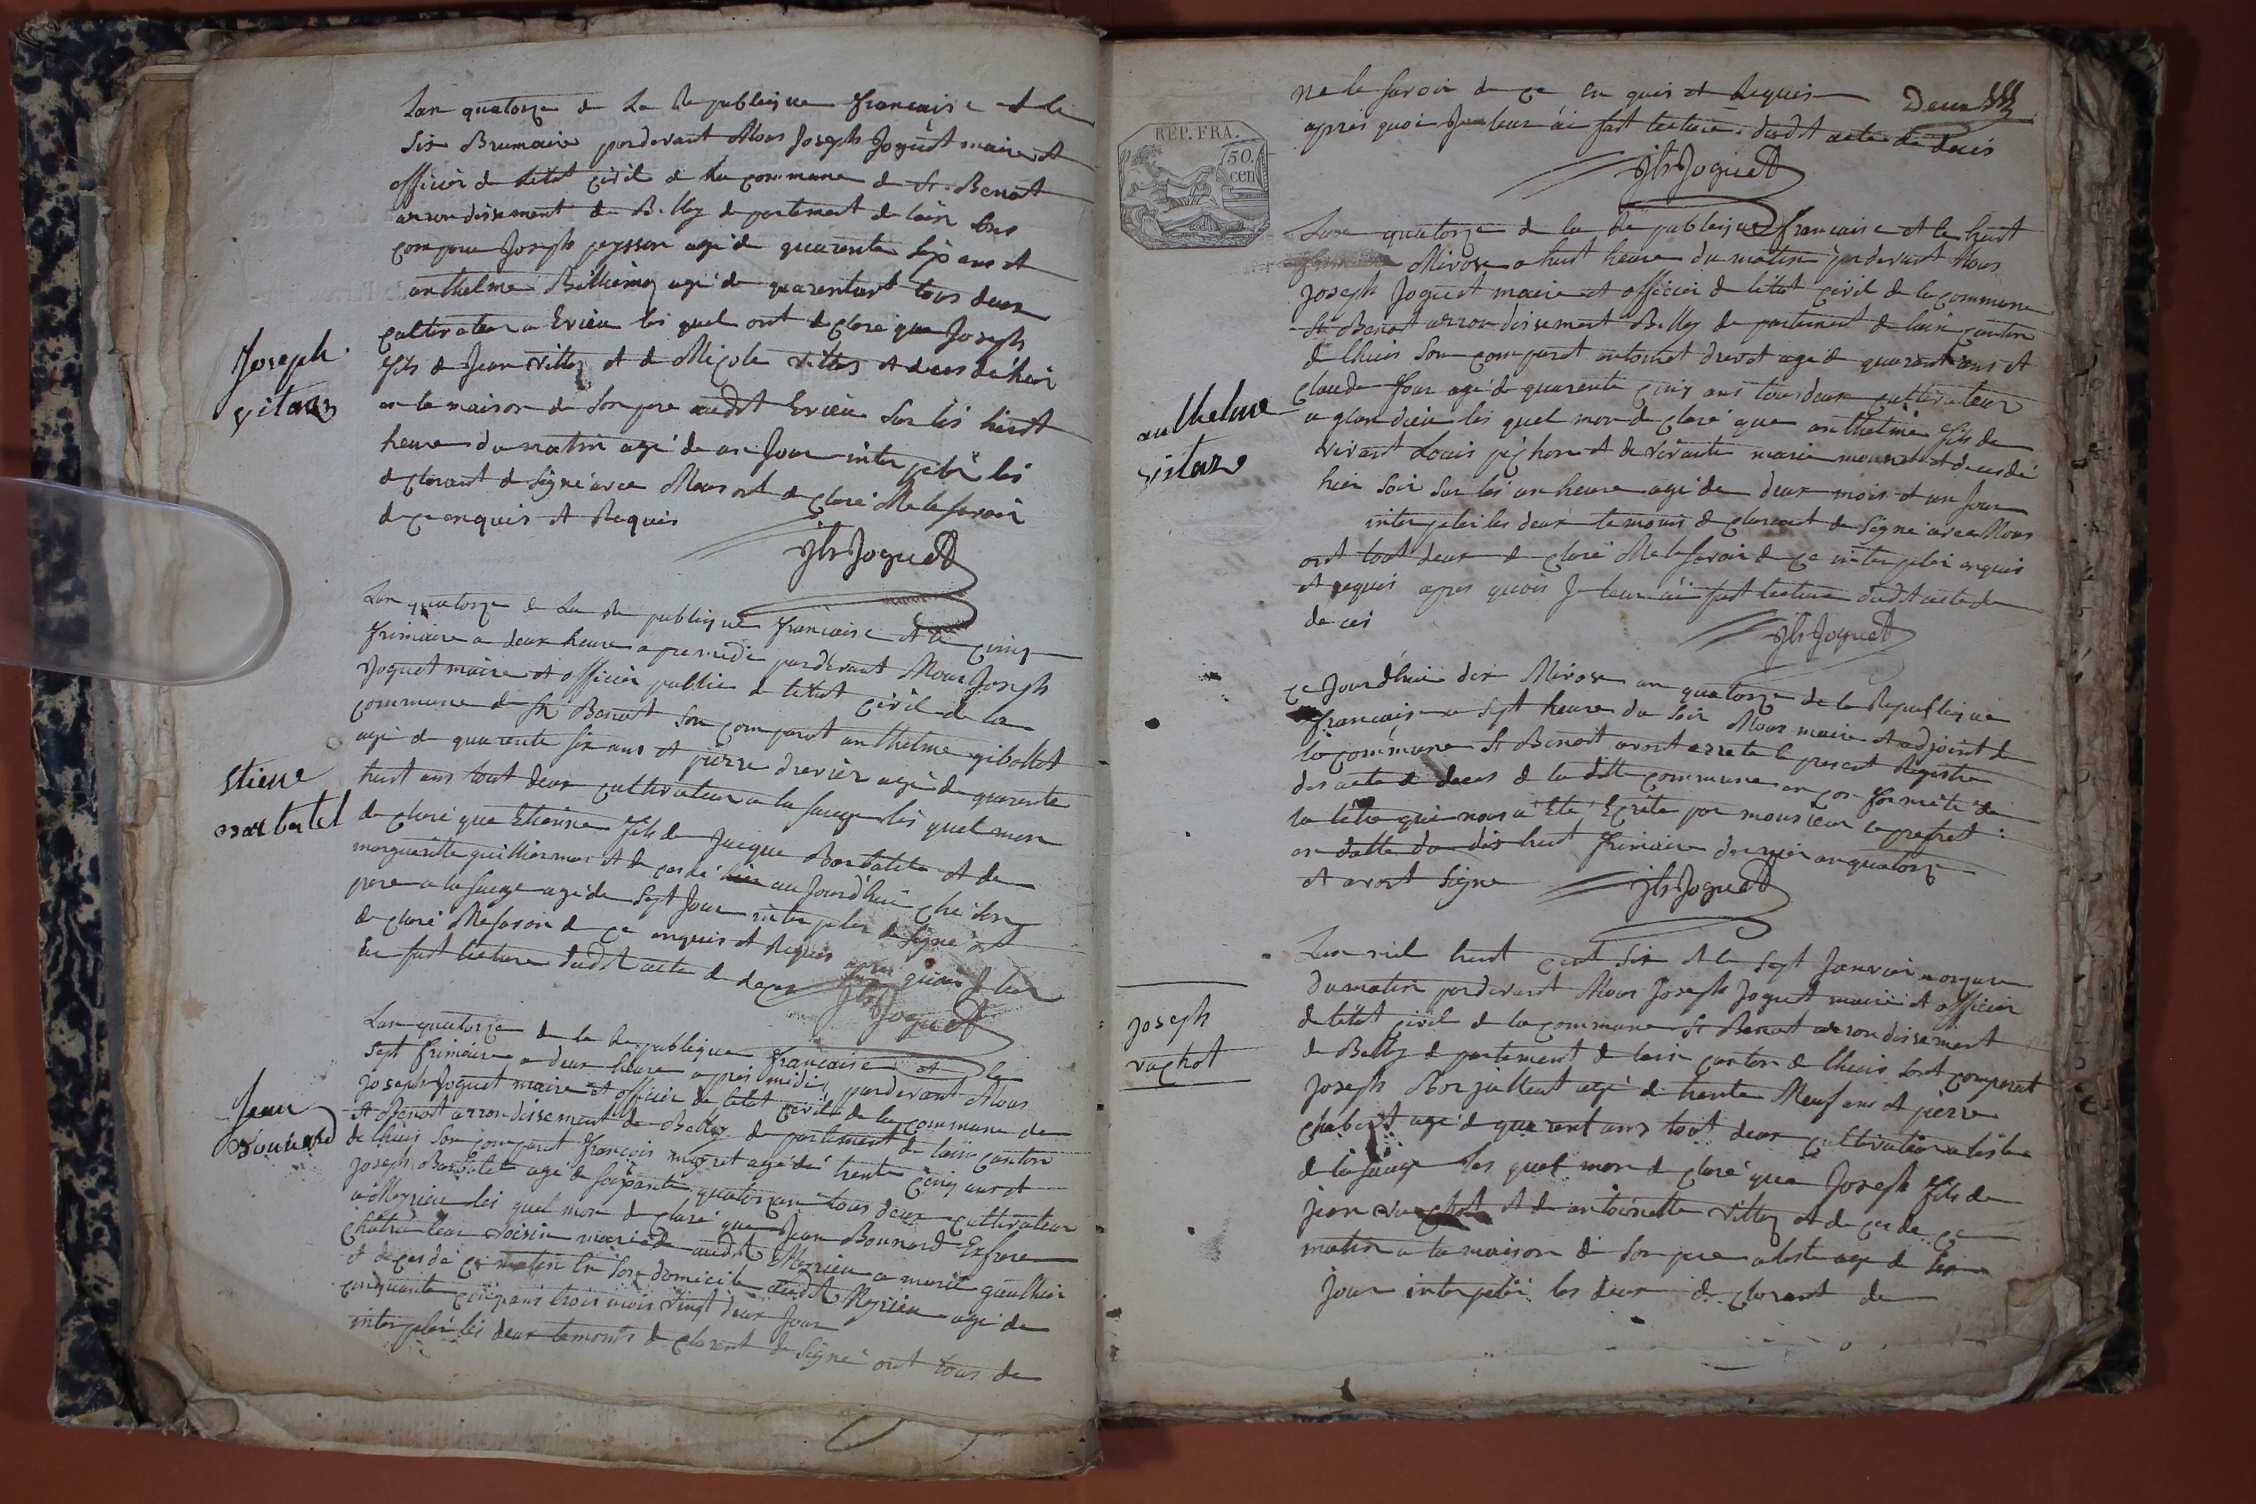 Lan quatorze de La Republique francaise et le
six Brumaire pardevant Nous Joseph Joguet maire et
officier de letat civil de la commune de St. Benoit
arrondissement de Belley departement de lain sont
comparu Joseph peysson agé de quarente six ans et
anthelme Billiémaz agé de quarentuit tous deux
cultivateur a Evieu les quel ont declaré que Joseph
fils de Jean vittoz et de Nicole vittoz et decedé hier
en la maison de son pere audit Evieu sur les huit
heure du matin agé de un Jour interpelé les
declarant de signé avec Nous ont declaré Ne le savoir
de ce enquis et Requis
Jh Joguet
Joseph
vitoz
Lan quatorze de La Republique francaise et le cinq
frimaire a deux heure apremidi pardevant Nous Joseph
Joguet maire et officier public de letat civil de la
commune de St Benoit son comparut anthelme gibollet
agé de quarente six ans et pierre drevier agé de quarente
huit ans tout deux cultivateur a la sauge les quel mon
declaré que Etienne fils de Jacque Barbatete et de
morguerite guilliermos et decedé hier au Jourdhui ché son
pere a la sauge agé de sept Jour interpeler de signé ont
declaré Ne savoir de ce enquis et Requis apres quoi Je leur
en fait lecture dudit acte de deces
Jh Joguet
Etiene
barbatet
Lan quatorze de la Republique francaise et le
sept frimaire a deux heure apres midi pardevant Nous
Joseph Joguet maire et officier de letat civil de la commune de
St Benoit arrondissement de Belley departement de lain canton
de lhuis son comparut francois mugret agé de trente cinq ans et
Joseph Barbatet agé de soixante quatorze ans tous deux cultivateur
a Meyrieu les quel mon declaré que Jean Bounard
leur voisin marié audit Meyrieu a marie gaulthier
et decedé ce matin en son domicile audit Meyrieu agé de
cinquante cinq ans trois mois vingt deux Jour
interpelé les deux temoins declarent de signé ont tous de
Jean
Bounard
Ne le savoir de ce en quis et Requis
apres quoi Je leur ai fait lecture dudit acte de deces
Deux
REP. FRA.
50.
cen
Jh Joguet
Lan quatorze de la Republique francaise et le huit
Nivose a huit heure du matin pardevant Nous
Joseph Joguet maire et officier de letat civil de la commune
St Benoit arrondissement Belley departement de lain canton
de lhuis son comparut antoinet drevet agé de quarent ans et
Claude four agé de quarente cinq ans tous deux cultivateur
a glandieu les quel mon declaré que anthelme fils de
vivant Louis pichon et de vivante marie mounet et decedé
hier soir sur les un heure agé de deux mois et un Jour
interpeler les deux temoins declarant de signé avec Nous
ont tout deux declaré Ne le savoir de ce interpeler enquis
et requis apres quois Je leur ai fait lecture dudit acte de
deces
Jh Joguet
anthelme
vitoz
Ce Jourdhui dix Nivose an quatorze de la Republique
francaise a sept heure du soir Nous maire et adjoint de
la commune St Benoit avont arrete le present Registre
des acte de deces de la ditte commune en conformité de
la lettre qui nous a Eté Ecrite par monsieur le prefet
en datte du dix huit frimaire dernier an quatorze
et avont signe
Jh Joguet
Lan mil huit cent six et le sept Janvier a onzeure
du matin pardevant Nous Joseph Joguet maire et officier
de letat civil de la commune St Benoit arrondissement
de Belley departement de lain canton de lhuis sont comparut
Joseph Borjallent agé de trente Neuf ans et pierre
chabert agé de quarent ans tout deux cultivateur a lisle
de la sauge les quel mon declaré que Joseph fils de
jean vuachot et de antoinette vittoz et decede ce
matin a la maison de son pere aliste agé de six
Jour interpelé les deux declarent de
Joseph
vuachot